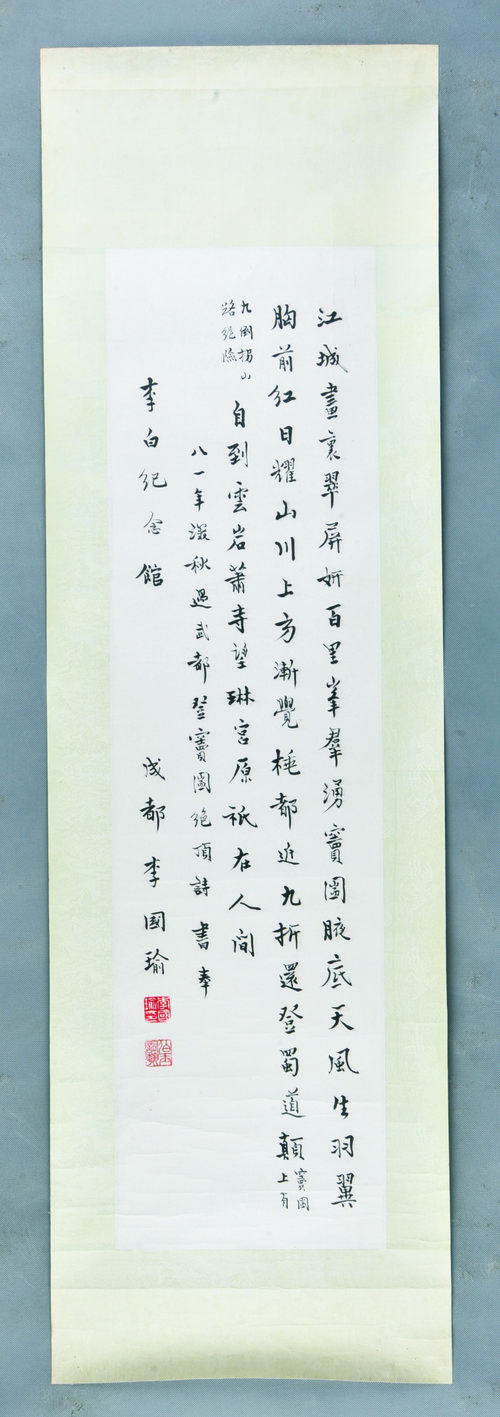 江城畫裏翠屏妍百里峯羣湧竇圌腋底天風生羽翼
胸前紅日耀山川上方漸覺都近九折還登蜀道顛
竇圌
上有
九倒拐山
路絕險
自到雲岩蕭寺望琳宮原祇在人间
八一年深秋過武都登竇圌絕頂詩書奉
李白紀念館 成都李國瑜